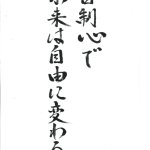 自制心で
未来は自由に変わる